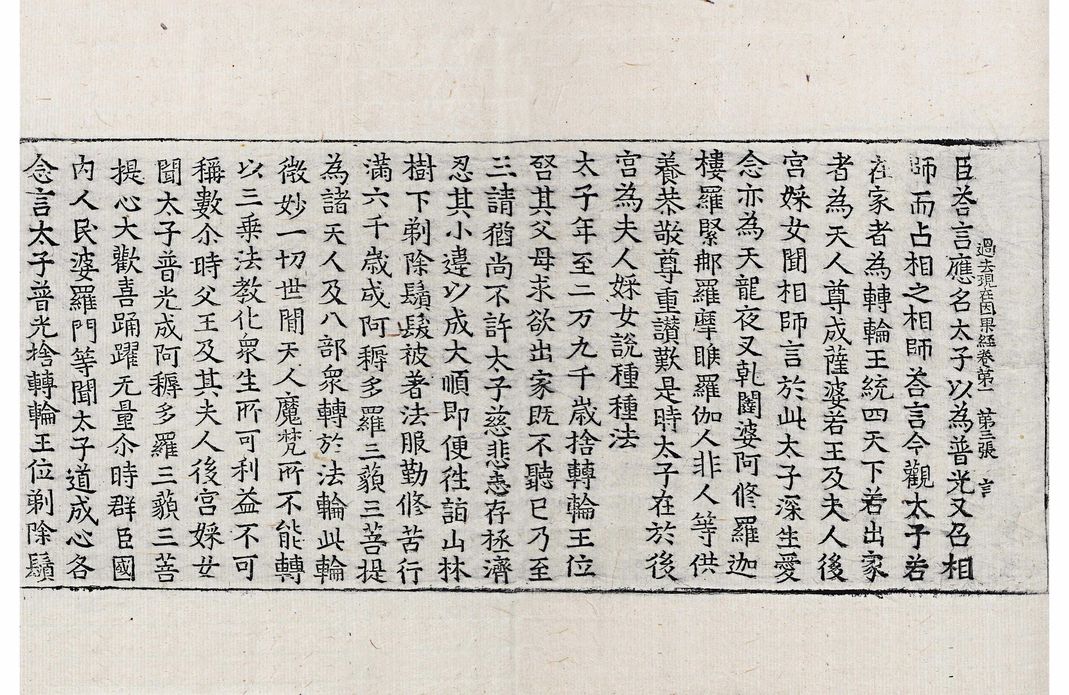 過去現在因果經卷第一　第三張　言
臣荅言應名太子以為普光又召相
師而占相之相師荅言今觀太子若
在家者為轉輪王統四天下若出家
者為天人尊成薩婆若王及夫人後
宮婇女聞相師言於此太子深生愛
念亦為天龍夜叉乾闥婆阿修羅迦
樓羅緊那羅摩睺羅伽人非人等供
養恭敬尊重讃歎是時太子在於後
宮為夫人婇女說種種法
太子年至二万九千歲捨轉輪王位
啓其父母求欲出家既不聽已乃至
三請猶尚不許太子慈悲恚存拯濟
忍其小違以成大順即便徃詣山林
樹下剃除鬚髮被著法服勤修苦行
滿六千歲成阿耨多羅三藐三菩提
為諸天人及八部衆轉於法輪此輪
微妙一切世閒天人魔梵所不能轉
以三乘法教化衆生所可利益不可
稱數尒時父王及其夫人後宮婇女
聞太子普光成阿耨多羅三藐三菩
提心大歡喜踊躍无量尒時群臣國
內人民婆羅門等聞太子道成心各
念言太子普光捨轉輪王位剃除鬚